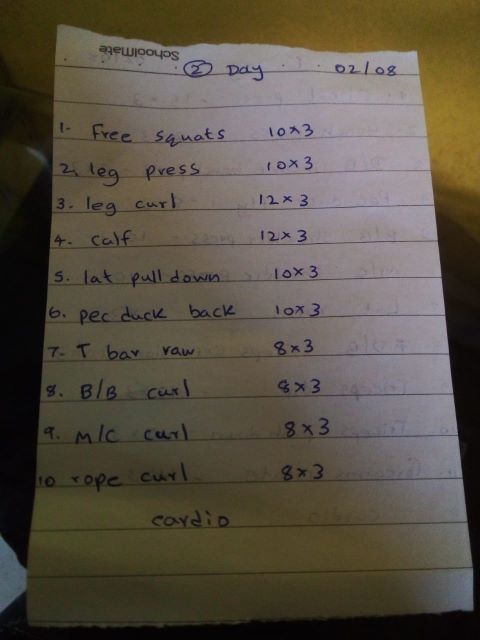 SchoolMate
② Day 02/08
1. Free squats 10x3
2. leg press 10x3
3. leg curl 12x3
4. calf 12x3
5. lat pull down 10x3
6. pec duck back 10x3
7. T bar raw 8x3
8. B/B curl 8x3
9. M/C curl 8x3
10 rope curl 8x3
cardio